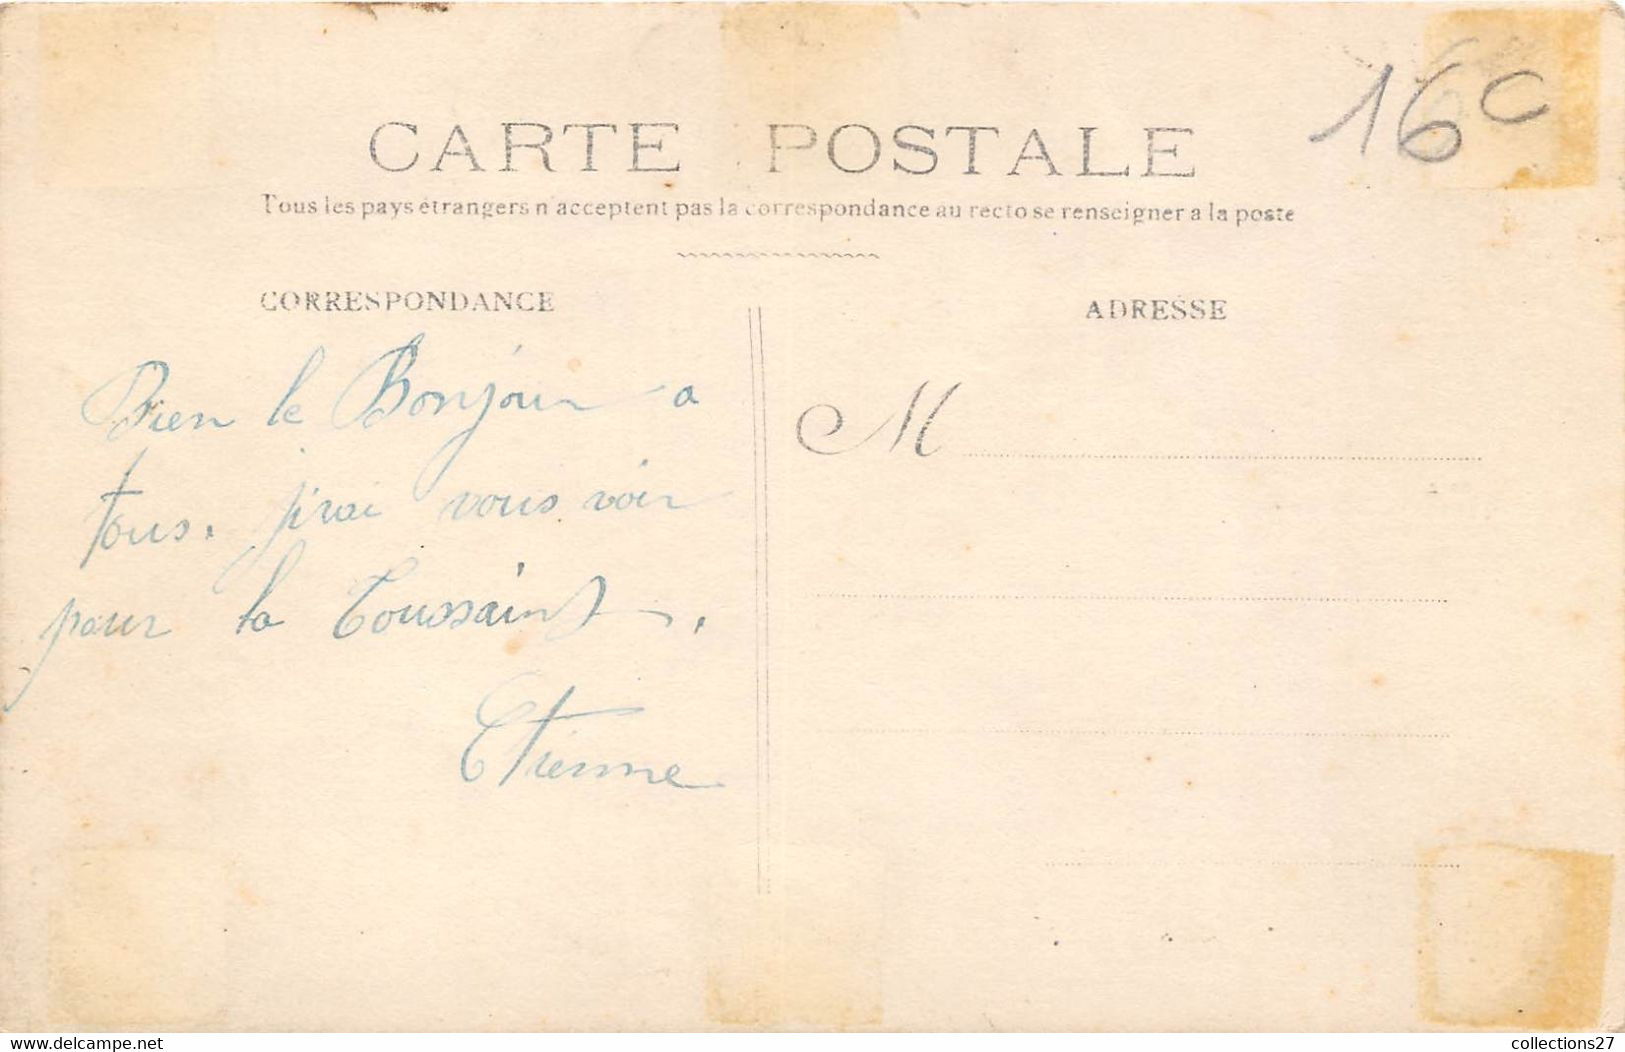 16c
CARTE POSTALE
Tous les pays étrangers n'acceptent pas la correspondance au recto se renseigner a la poste
CORRESPONDANCE
ADRESSE
M
Bien le Bonjour a
tous. j'irai vous voir
pour la Toussaint.
Etienne
collections27